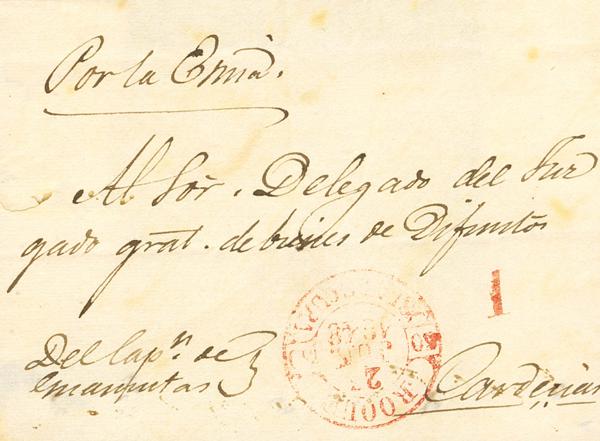 Por la Emª.
Al Sōr. Delegado del Juz
gado gral. de bienes de Difuntos
1
Del Capn. de
Cardenas
2